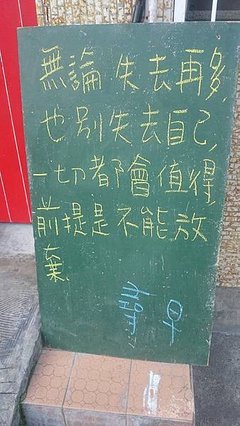 無論失去再多,
也別失去自己,
一切都會值得,
前提是不能放
棄.
早